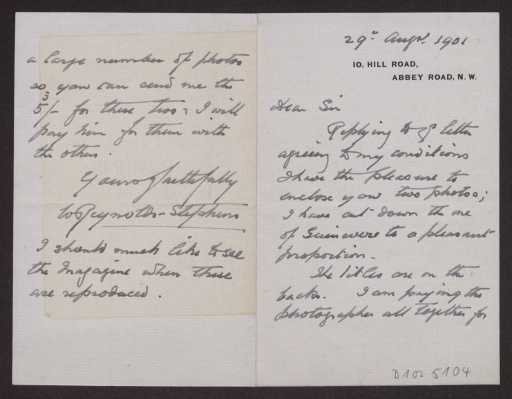 29th Augst. 1901
10, HILL ROAD,
ABBEY ROAD, N.W.
Dear Sir
Replying to yr letter
agreeing to my conditions
I have the pleasure to
enclose you two photos;
I have cut down the one
of Guinevere to a pleasant
proportion.
The titles are on the
backs. I am paying the
photographer all together for
a large number of photos
so you can send me the
5/- for these two & I will
pay him for them with
the others.
Yours faithfully
W Reynolds-Stephens
I should much like to see
the Magazine when these
are reproduced.
D102 5104